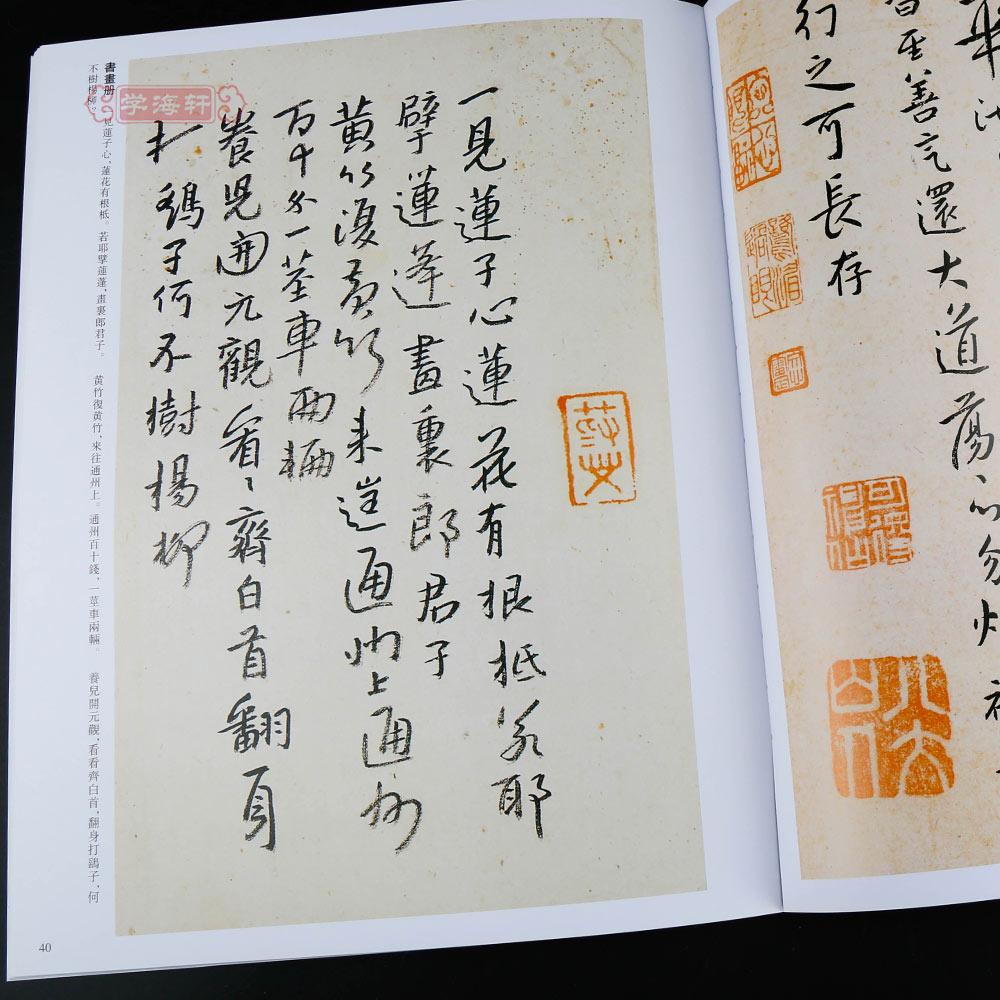 善言還大道蕩心勿
行之可長存
一見蓮子心蓮花有根柢若耶
擘蓮蓬畫裏郎君子
黃竹復黃竹來往通州上通州
百十錢一莖車兩輛
養兒開元觀看〻齊白首翻身
打鴟子何不樹楊柳
書畫册
見蓮子心，蓮花有根柢。若耶擘蓮蓬，畫裏郎君子。 黃竹復黃竹，來往通州上。通州百十錢，一莖車兩輛。 養兒開元觀，看看齊白首，翻身打鴟子，何
不樹楊柳。
学海轩
40